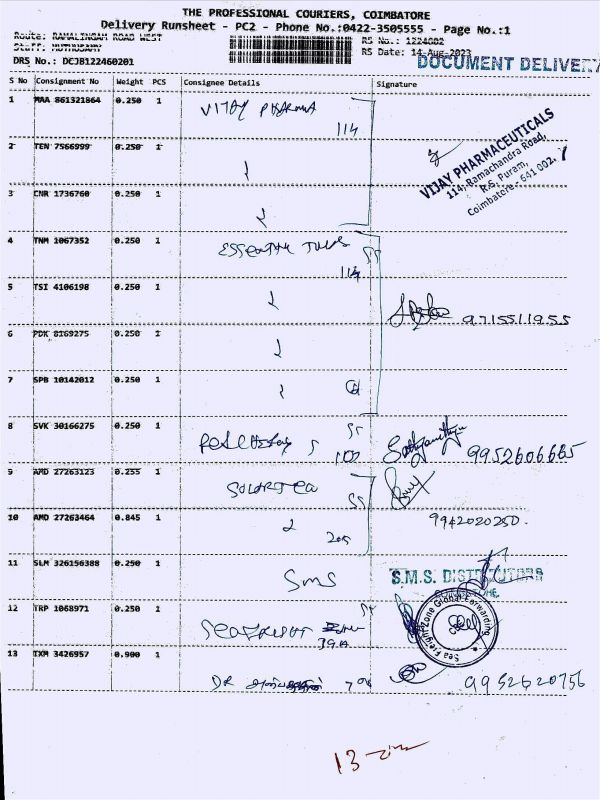 THE PROFESSIONAL COURIERS, COIMBATORE
Delivery Runsheet - PC2 - Phone No.:0422-3505555 - Page No.:1
Route: RAMALINGAM ROAD WEST
RS No.: 1224602
Staff: MUTHUSAMY
RS Date: 14-Aug-2023
DRS No.: DCJB122460201
DOCUMENT DELIVERY
S No Consignment No Weight PCS Consignee Details Signature
1 MAA 861321864 0.250 1 VIJAY PHARMA
114
2 TEN 7566999 0.250 1
VIJAY PHARMACEUTICALS
114, Ramachandra Road,
R.S. Puram,
Coimbatore - 641 002.
3 CNR 1736760 0.250 1
4 TNM 1067352 0.250 1
114
5 TSI 4106198 0.250 1
9715511955
6 PDK 8169275 0.250 1
7 SPB 10142012 0.250 1
8 SVK 30166275 0.250 1
102
9952606665
9 AMD 27263123 0.255 1
10 AMD 27263464 0.845 1
205
9942020250.
11 SLM 326156388 0.250 1 SMS
S.M.S. DISTRIBUTORS
12 TRP 1068971 0.250 1
39A
Sea Freight Zone Global Forwarding
13 TXM 3426957 0.900 1
DR
9952620756
13